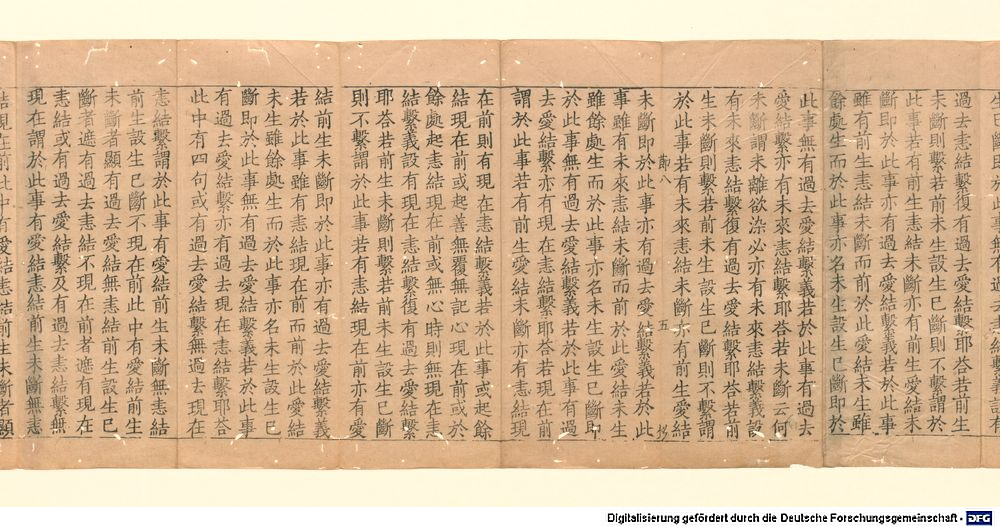 過去恚結繫復有過去愛結繫耶荅若前生
未斷則繫若前未生設生已斷則不繫謂於
此事若有前生恚結未斷亦有前生愛結未
斷即於此事亦有過去愛結繫義若於此事
雖有前生恚結未斷而前於此愛結未生雖
餘處生而於此事亦名未生設生已斷即於
此事無有過去愛結繫義若於此事有過去
愛結繫亦有未來恚結繫耶荅若未斷云何
未斷謂未離欲染必亦有未來恚結繫義設
有未來恚結繫復有過去愛結繫耶荅若前
生未斷則繫若前未生設生已斷則不繫謂
於此事若有未來恚結未斷亦有前生愛結
即八 五 抄
未斷即於此事亦有過去愛結繫義若於此
事雖有未來恚結未斷而前於此愛結未生
雖餘處生而於此事亦名未生設生已斷即
於此事無有過去愛結繫義若於此事有過
去愛結繫亦有現在恚結繫耶荅若現在前
謂於此事若有前生愛結未斷亦有恚結現
在前則有現在恚結繫義若於此事或起餘
結現在前或起善無覆無記心現在前或於
餘處起恚結現在前或無心時則無現在恚
結繫義設有現在恚結繫復有過去愛結繫
耶荅若前生未斷則繫若前未生設生已斷
則不繫謂於此事若有恚結現在前亦有愛
結前生未斷即於此事亦有過去愛結繫義
若於此事雖有恚結現在前而前於此愛結
未生雖餘處生而於此事亦名未生設生已
斷即於此事無有過去愛結繫義若於此事
有過去愛結繫亦有過去現在恚結繫耶荅
此中有四句或有過去愛結繫無過去現在
恚結繫謂於此事有愛結前生未斷無恚結
前生設生已斷不現在前此中有愛結前生
未斷者顯有過去愛結繫無恚結前生設生已
斷者遮有過去恚結不現在前者遮有現在
恚結或有過去愛結繫及有過去恚結繫無
現在謂於此事有愛結恚結前生未斷無恚
結現在前此中有愛結恚結前生未斷者顯
Digitalisierung gefördert durch die Deutsche Forschungsgemeinschaft - DFG